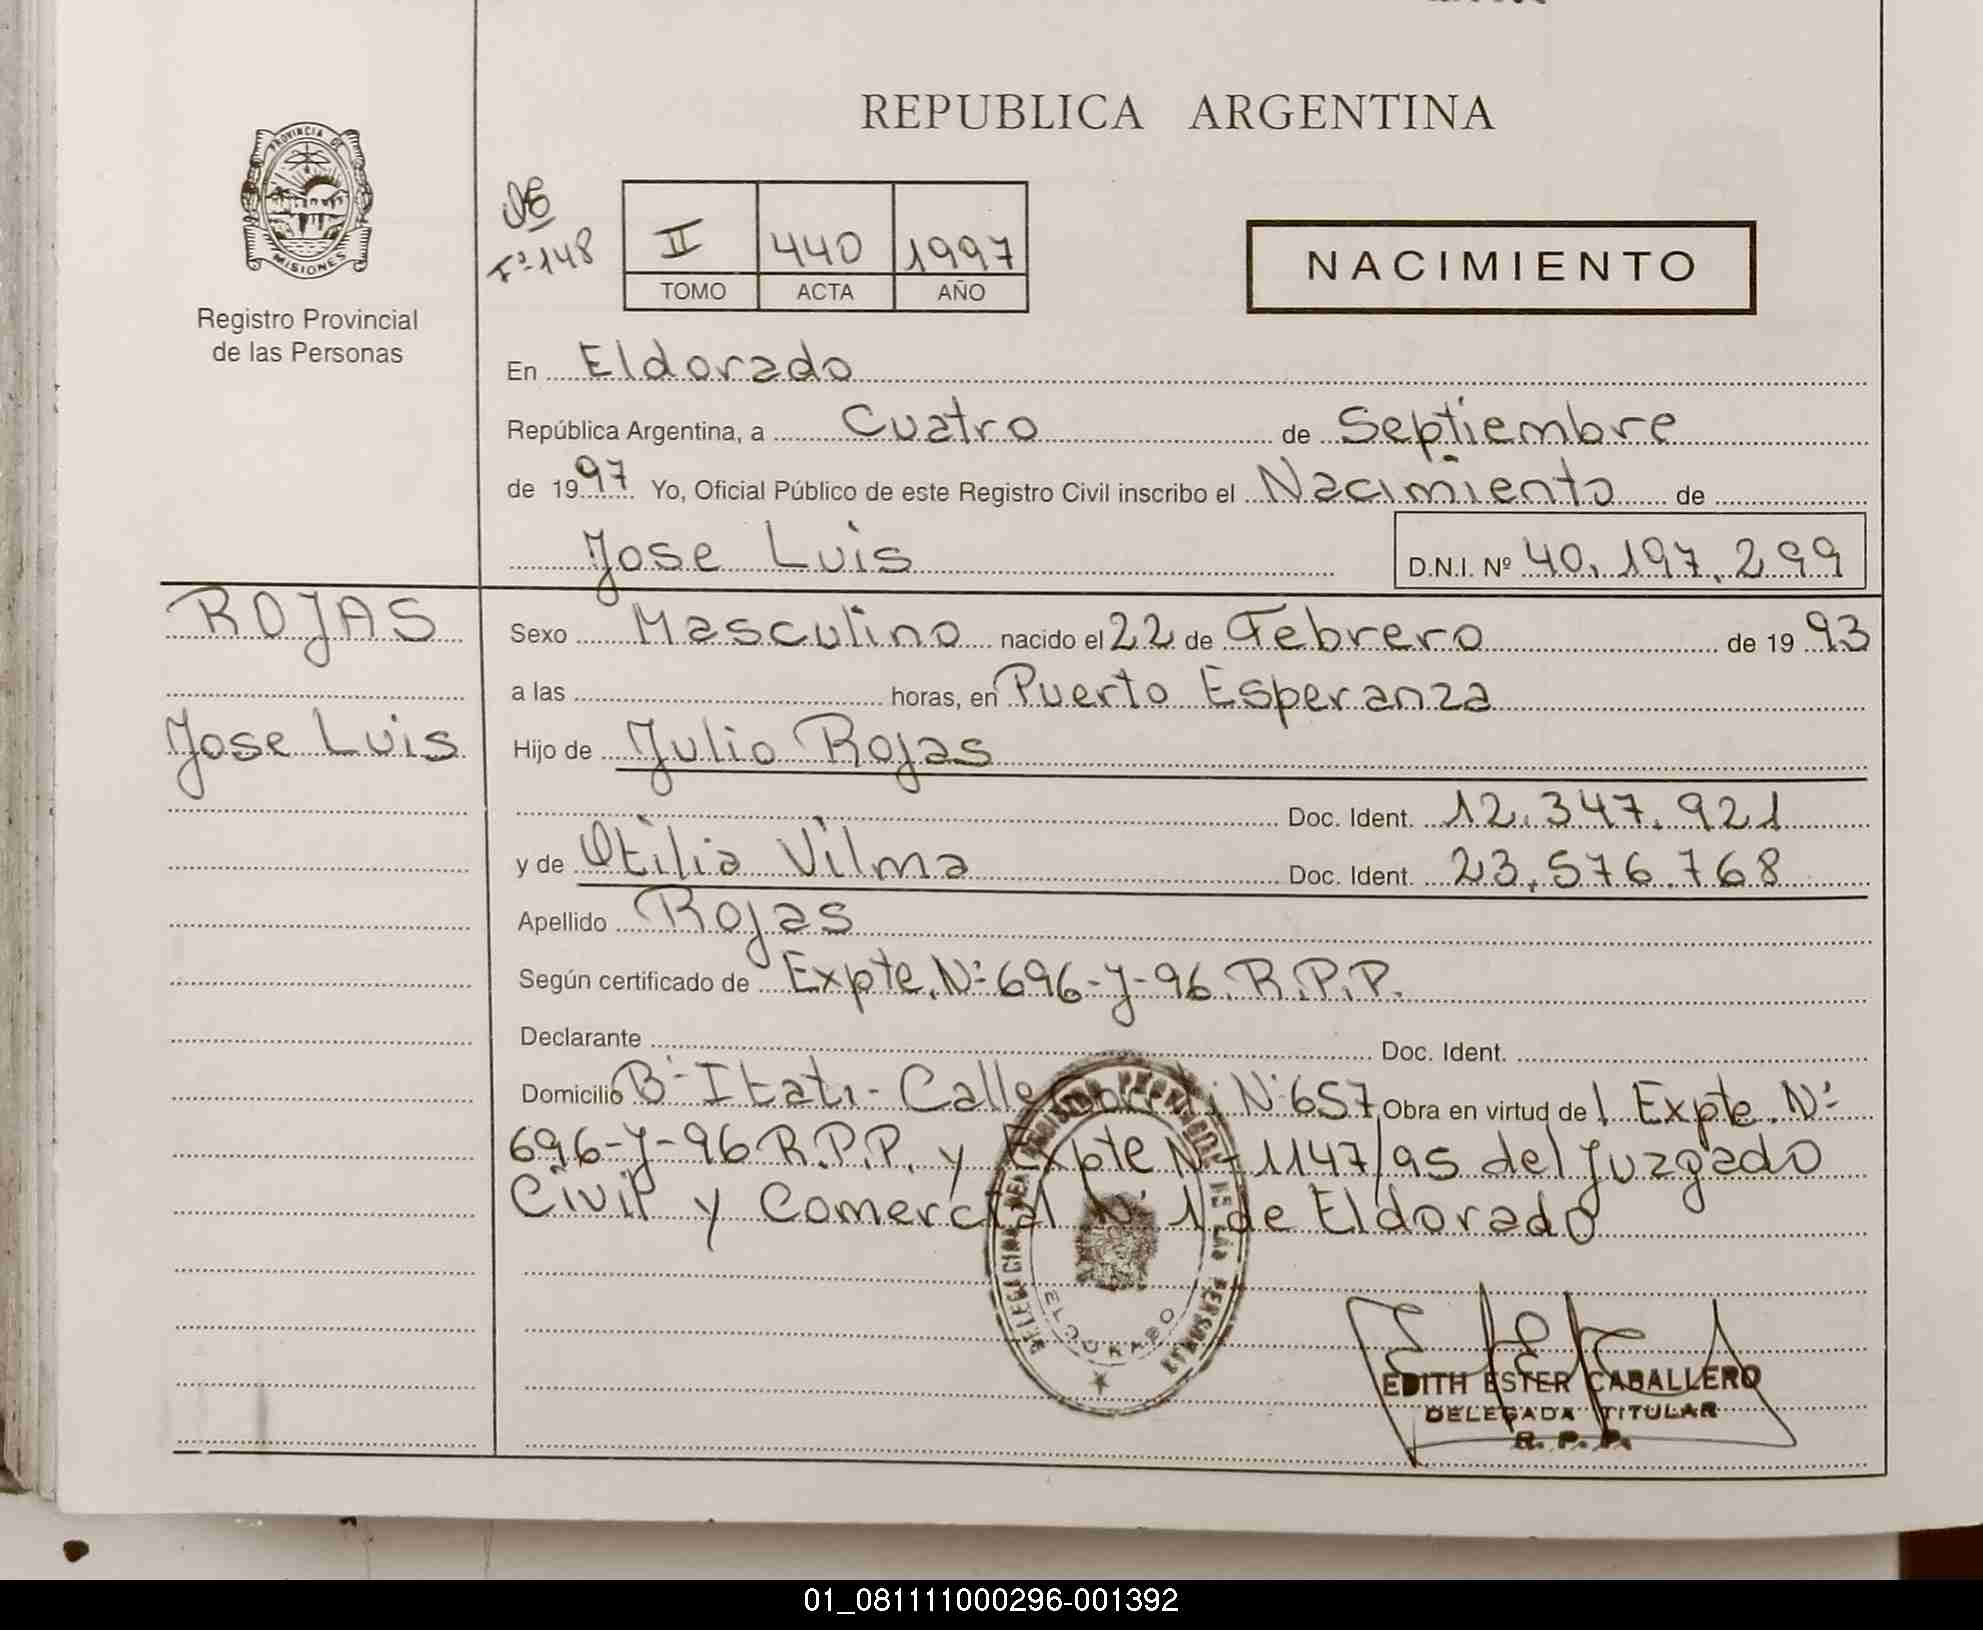 REPUBLICA ARGENTINA
PROVINCIA DE
MISIONES
Registro Provincial
de las Personas
Fº 148
II 440 1997
TOMO ACTA AÑO
NACIMIENTO
En Eldorado
República Argentina, a Cuatro de Septiembre
de 1997 Yo, Oficial Público de este Registro Civil inscribo el Nacimiento de
Jose Luis D.N.I. Nº 40.197.299
ROJAS
Jose Luis
Sexo Masculino nacido el 22 de Febrero de 1993
a las horas, en Puerto Esperanza
Hijo de Julio Rojas
Doc. Ident. 12.347.921
y de Otilia Vilma Doc. Ident. 23.576.768
Apellido Rojas
Según certificado de Expte. Nº 696-J-96. R.P.P.
Declarante Doc. Ident.
Domicilio Bº Itati - Calle Nº 657 Obra en virtud del Expte. Nº
696-J-96 R.P.P. y Expte Nº 1147/95 del Juzgado
Civil y Comercial Nº 1 de Eldorado
ELDORADO
EDITH ESTER CABALLERO
DELEGADA TITULAR
R. P. P.
01_081111000296-001392